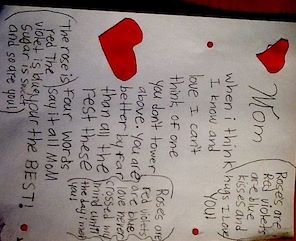 Mom
When i think
I know and
love I can't
think of one
you don't tower
above. You are
better by far
than all the
rest these
Four words
say it all MOM
your the BEST!
Roses are
Red violets
are blue
kisses and
hugs I love
YOU!
Roses are
red violets
are blue
love never
crossed my
mind until
the day i met
you!
(The rose is
red the
violet is blue
sugar is sweet
and so are you!)